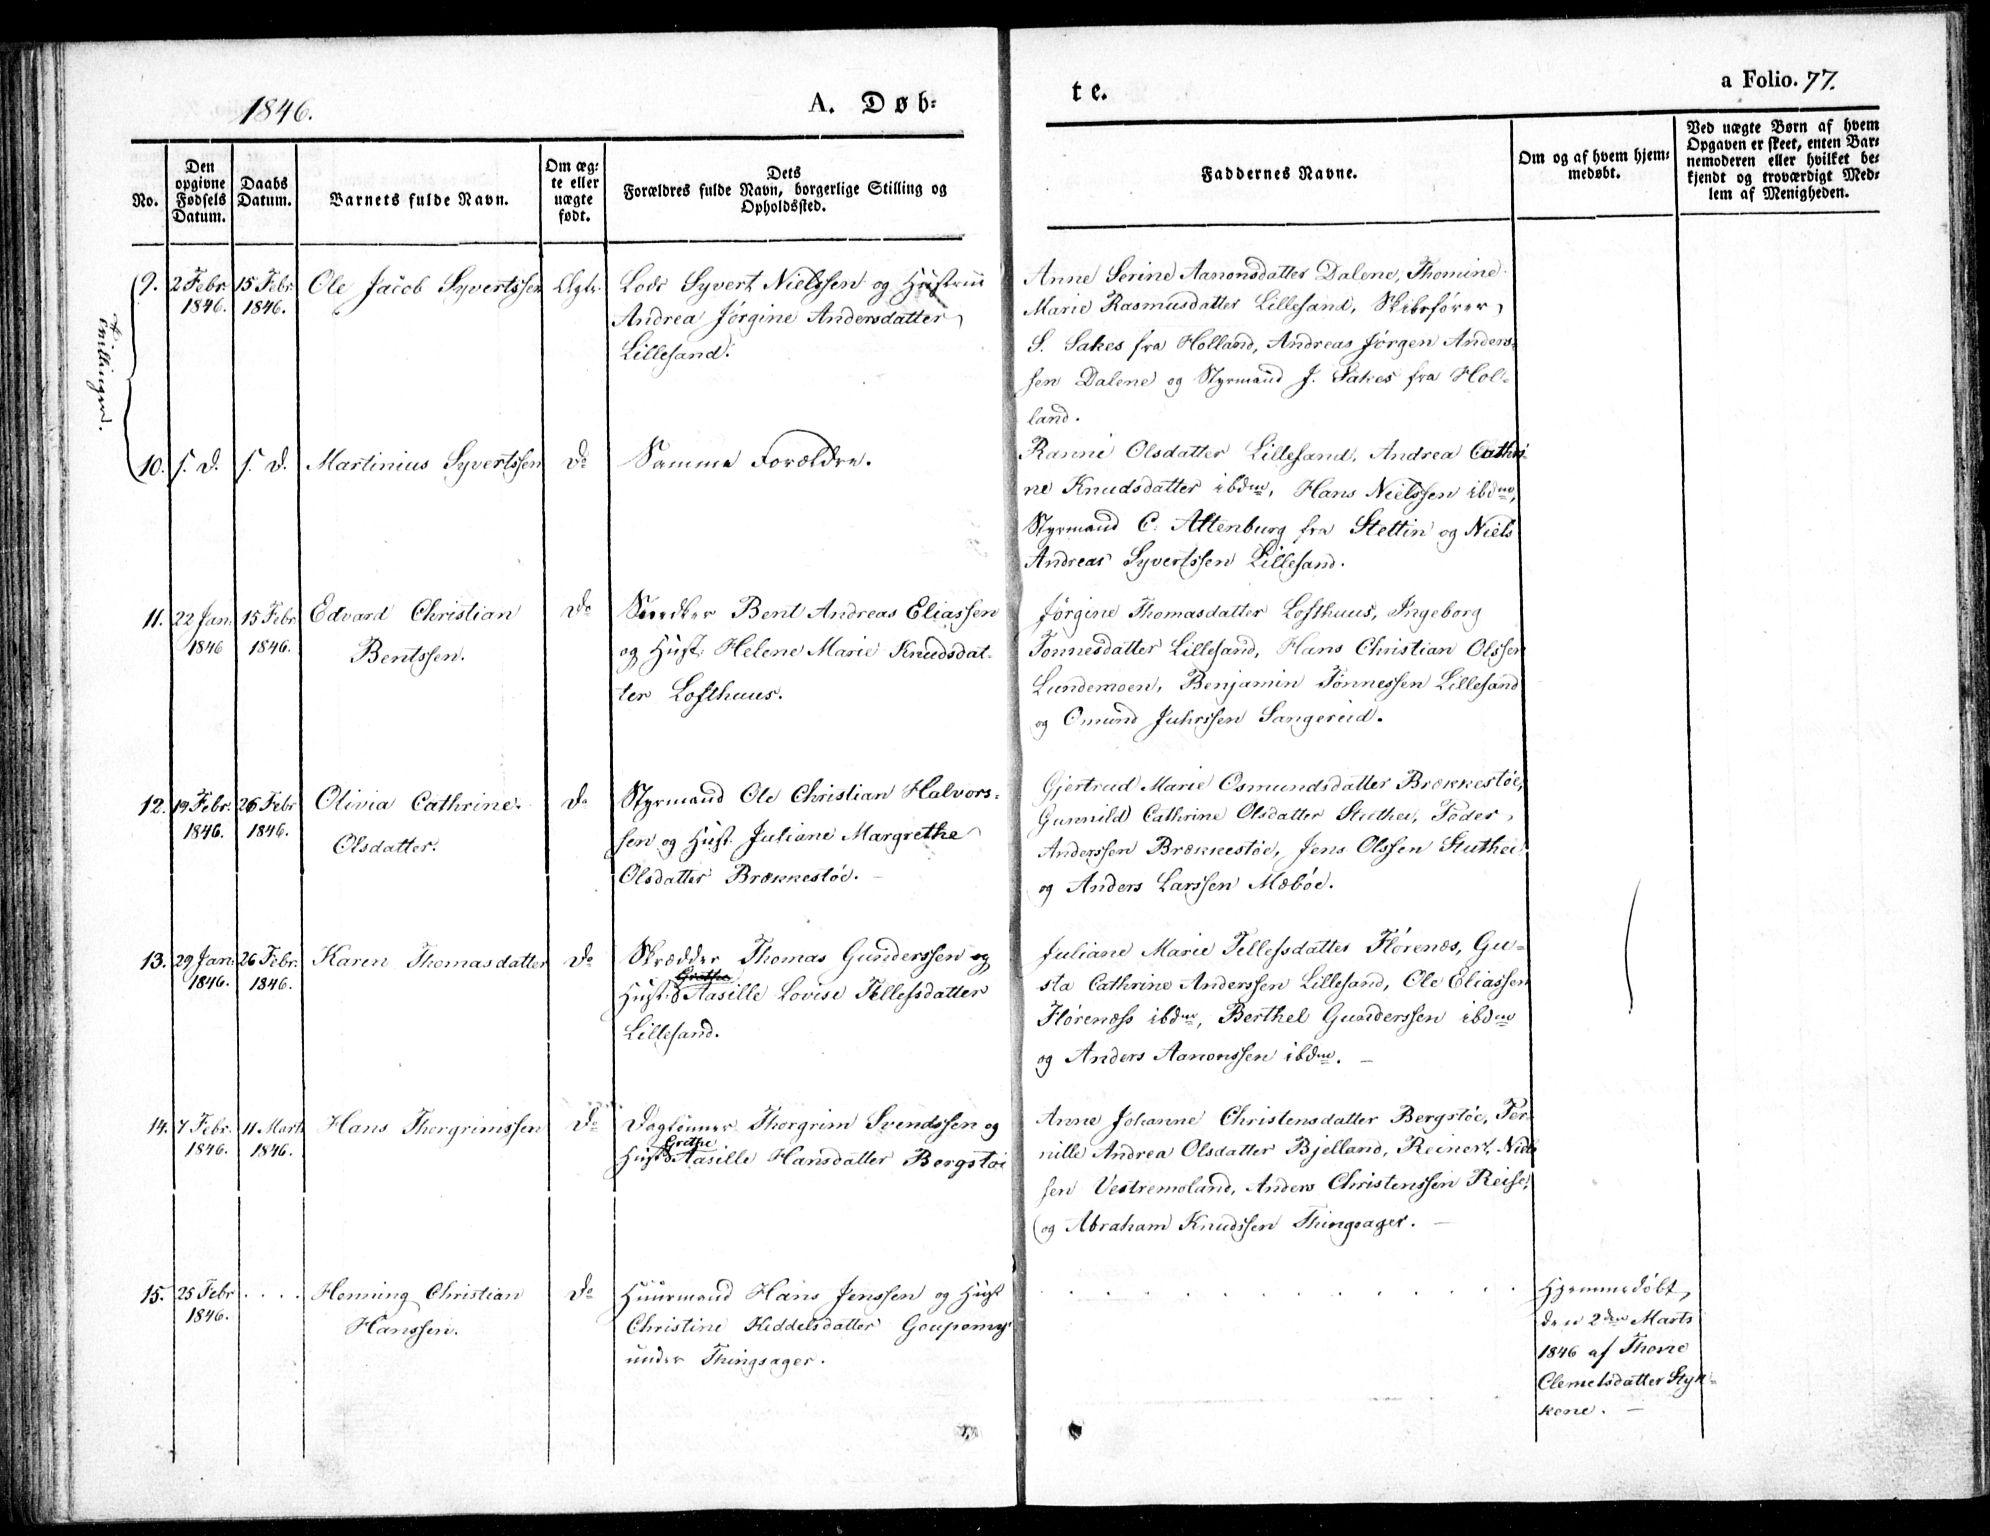 1846.
A. Døb:
te.
a Folio. 77.
No.
Den opgivne Fødsels Datum.
Daabs Datum.
Barnets fulde Navn.
Om æg: te eller uægte født.
Dets Forældres fulde Navn, borgerlige Stilling og Opholdssted.
Faddernes Navne.
Om og af hvem hjem: medøbt.
Ved uægte Børn af hvem Opgaven er skeet, enten Bar: nemoderen eller hvilket be: kjendt og troværdigt Med: lem af Menigheden.
Tvillinger.
9. 2 Febr 1846. 15 Febr 1846. Ole Jacob Syvertssen Ægte
Lods Syvert Nielssen og Hustrue
Andrea Jørgine Andersdatter
Lillesand.
Anne Serine Aanonsdatter Dalene, Thomine
Marie Rasmusdatter Lillesand, Skibsfører
S. Sakes fra Holland, Andreas Jørgen Anders-
sen Dalene og Styrmand J. Sakes fra Hol-
land.
10. s. d. s. d. Martinius Syvertssen do
Samme Forældre.
Ranni Olsdatter Lillesand, Andrea Cathri-
ne Knudsdatter ibdm, Hans Nielssen ibdm,
Styrmand C. Altenburg fra Stettin og Niels
Andreas Syvertssen Lillesand.
11. 22 Jan. 1846 15 Febr 1846. Edvard Christian
Bentssen. do
Snedker Bent Andreas Eliassen
og Hust. Helene Marie Knudsdat-
ter Lofthuus.
Jørgine Thomasdatter Lofthuus, Ingeborg
Tønnesdatter Lillesand, Hans Christian Olssen
Lundemoen, Benjamin Tønnessen Lillesand
og Omund Juhrssen Sangereid.
12. 19 Febr. 1846. 26 Febr 1846. Olivia Cathrine
Olsdatter. do
Styrmand Ole Christian Halvors-
sen og Hust. Juliane Margrethe
Olsdatter Brækkestøe.
Gjertrud Marie Osmundsdatter Brækkestøe,
Gunnild Cathrine Olsdatter Stuthei, Peder
Anderssen Brækkestøe, Jens Olssen Stuthei
og Anders Larssen Mæbøe.
13. 29 Jan. 1846. 26 Febr. 1846. Karen Thomasdatter do
Skrædder Thomas Gunderssen og
Grethe
Hust. Aasille Lovise Tellefsdatter
Lillesand.
Juliane Marie Tellefsdatter Flørenæs, Gu-
sta Cathrine Anderssen Lillesand, Ole Eliassen
Flørenæss ibdm, Berthel Gunderssen ibdm
og Anders Aanonssen ibdm.
14. 7 Febr. 1846. 11 Marts 1846. Hans Thorgrimssen do
Daglønner Thorgrim Svendssen og
Grethe
Hust. Aasille Hansdatter Bergstøe
Anne Johanne Christensdatter Bergstøe, Per-
nille Andrea Olsdatter Bjelland, Reinert Niels-
sen Vestremoland, Anders Christenssen Reise,
og Abraham Knudssen Thingsager.
15. 25 Febr 1846. . . . . Henning Christian
Hanssen. do
Huusmand Hans Jenssen og Hust
Christine Keddelsdatter
under Thingsager.
Hjemmedøbt
den 2den Marts
1846 af Thorie
Clemetsdatter Styk-
kene.